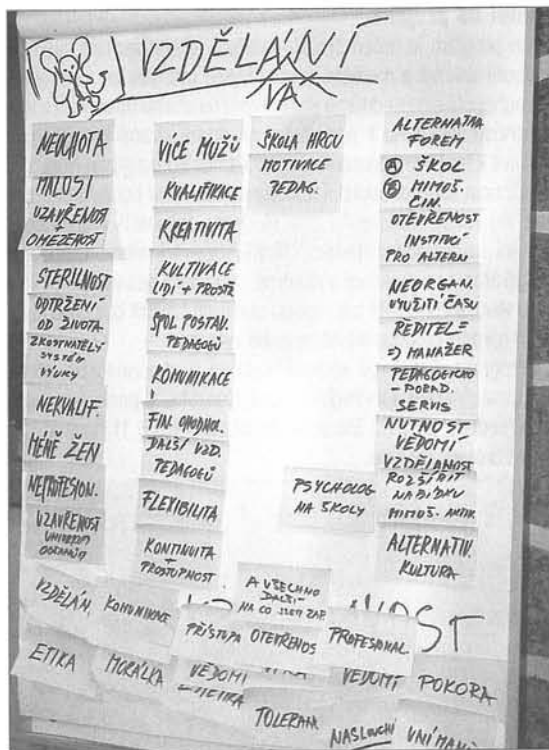 VZDĚLÁNÍ
VA
NEOCHOTA
MALOST
UZAVŘENOST
+
OMEZENOST
STERILNOST
ODTRŽENÍ
OD ŽIVOTA
ZKOSTNATĚLÝ
SYSTÉM
VÝUKY
NEKVALIF.
MÉNĚ ŽEN
NEPROFESION.
UZAVŘENOST
VÍCE MUŽŮ
KVALIFIKACE
KREATIVITA
KULTIVACE
LIDÍ + PROSTŘ.
SPOL POSTAV.
PEDAGOGŮ
KOMUNIKACE
FIN OHODNOC.
DALŠÍ VZD.
PEDAGOGŮ
FLEXIBILITA
KONTINUITA
+
PROSTUPNOST
ŠKOLA HROU
MOTIVACE
PEDAG.
PSYCHOLOG
NA ŠKOLY
A VŠECHNO
DALŠÍ
NA CO JSEM ZAP.
ALTERNATIVA
FOREM
A ŠKOL
B MIMOŠ.
ČIN.
OTEVŘENOST
INSTITUCÍ
PRO ALTERN.
NEORGAN.
VYUŽITÍ ČASU
ŘEDITEL =
=) MANAŽER
PEDAGOGICKO
- PORAD.
SERVIS
NUTNOST
VĚDOMÍ
VZDĚLANOST
ROZŠÍŘIT
NABÍDKU
MIMOŠ. AKTIV.
ALTERNATIV.
KULTURA
NOST
VZDĚLÁN.
KOMUNIKACE
PŘÍSTUPA
OTEVŘENOS
PROFESIONAL.
ETIKA
MORÁLKA
VĚDOMÍ
VĚDOMÍ
POKORA
TOLERAN
NASLOUCHÁ
VNÍMÁNÍ